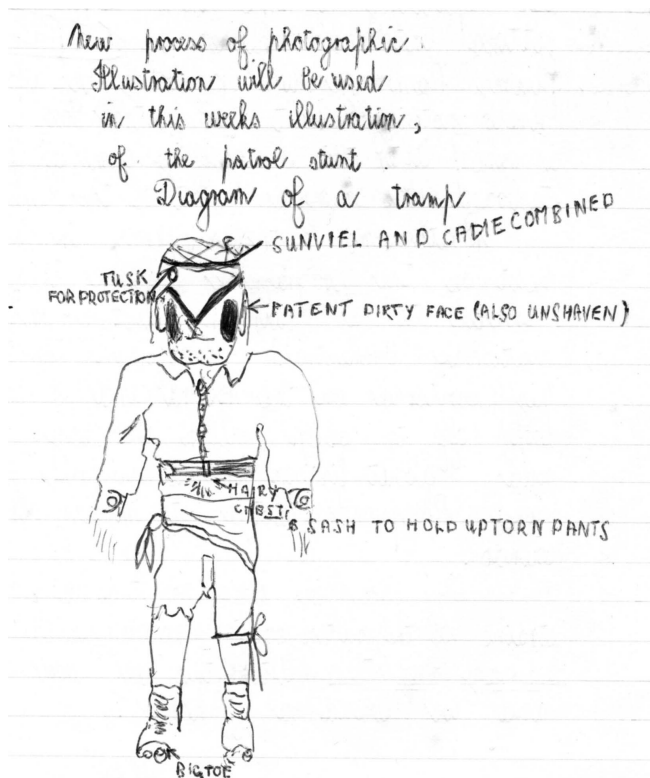 New process of photographic
Illustration will be used
in this weeks illustration,
of the patrol stunt.
Diagram of a tramp
SUNVIEL AND CADIE COMBINED
TUSK
FOR PROTECTION
PATENT DIRTY FACE (ALSO UNSHAVEN)
HAIRY
CHEST
SASH TO HOLD UP TORN PANTS
BIG TOE